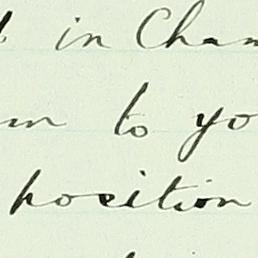 in Cham
to yo
position